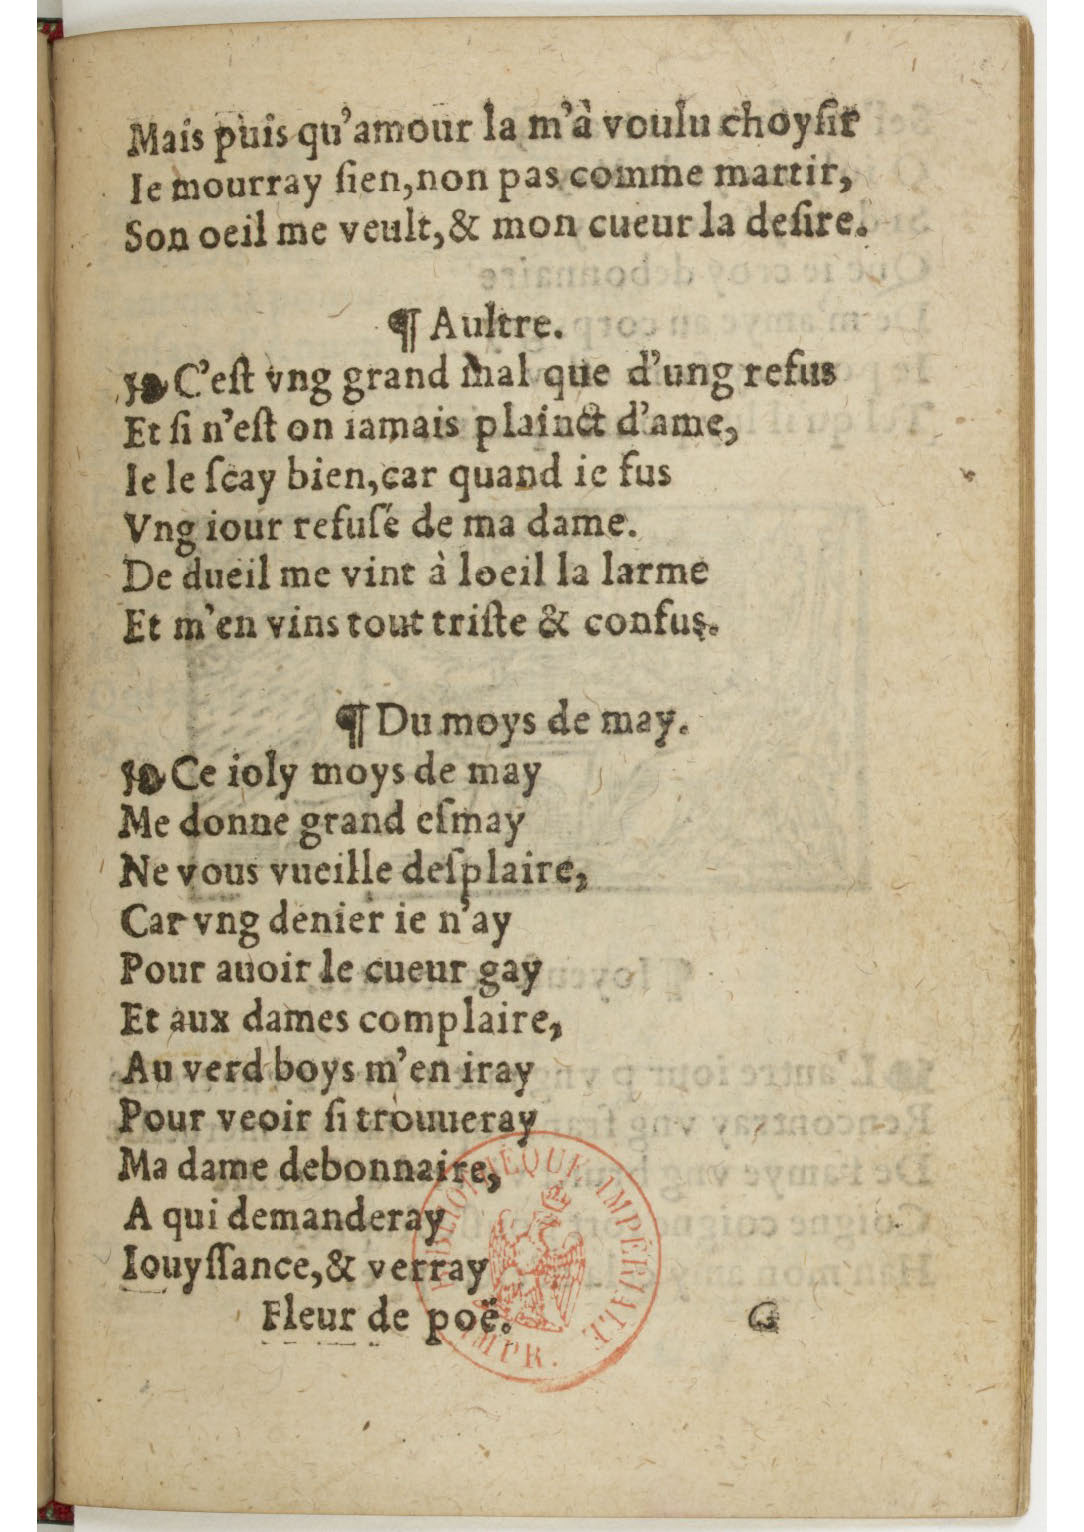 Mais puis qu'amour la m'à voulu choyſir
Ie mourray ſien, non pas comme martir,
Son oeil me veult, & mon cueur la deſire.
¶ Aultre.
❧ C'eſt vng grand mal que d'ung refus
Et ſi n'eſt on iamais plainct d'ame,
Ie le ſcay bien, car quand ie fus
Vng iour refuſé de ma dame.
De dueil me vint à loeil la larme
Et m'en vins tout triſte & confus.
¶ Du moys de may.
❧ Ce ioly moys de may
Me donne grand eſmay
Ne vous vueille deſplaire,
Car vng denier ie n'ay
Pour auoir le cueur gay
Et aux dames complaire,
Au verd boys m'en iray
Pour veoir ſi trouueray
Ma dame debonnaire,
A qui demanderay
Iouyſſance, & verray
Fleur de poë. G
BIBLIOTHÈQUE IMPÉRIALE
IMPR.